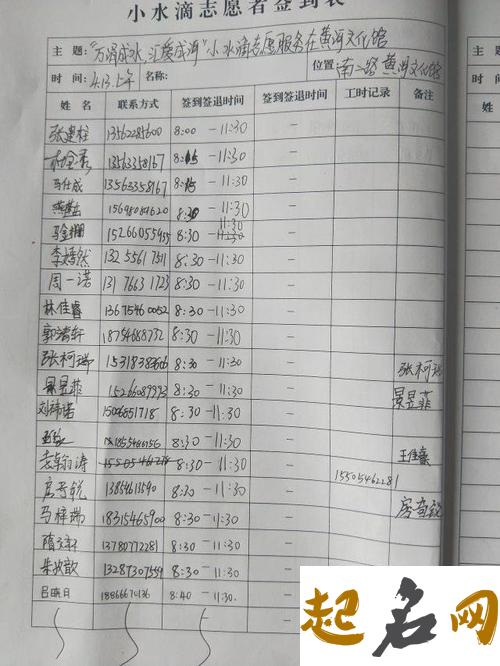 小水滴志愿者签到表
主题："万涓成水,汇爱成河"小水滴志愿服务在黄河文化馆
时间：4.13.上午 名称： 位置 南二路黄河文化馆
姓名 联系方式 签到签退时间 签到签退时间 工时记录 备注
张建柱 13562285600 8:00 -11:30 -
13563358167 8:15 -11:30 -
马仕成 13563358167 8:15 -11:30 -
15698081620 8:30 -11:30 -
15266055455 8:30 -11:30 -
李嫣然 13255617511 8:30 -11:30 -
周一诺 13176631723 8:30 -11:30 -
林佳睿 13675460052 8:30 -11:30 -
郭渃轩 18754688732 8:30 -11:30 -
张柯瑞 15318383666 8:30 -11:30 - 张柯瑞
景昱菲 15266089993 8:30 -11:30 - 景昱菲
刘祎诺 15066551718 8:30 -11:30 -
8:30 -11:30 - 王佳豪
袁翰涛 8:30 -11:30 - 15505462281
13854613590 8:30 -11:30 -
马梓瑞 18315465900 8:30 -11:30 -
隋文轩 13780772281 8:30 -11:30 -
朱欣歆 13287307559 8:30 -11:30 -
吕晓日 18866674136 8:40 -11:30 -
起名网